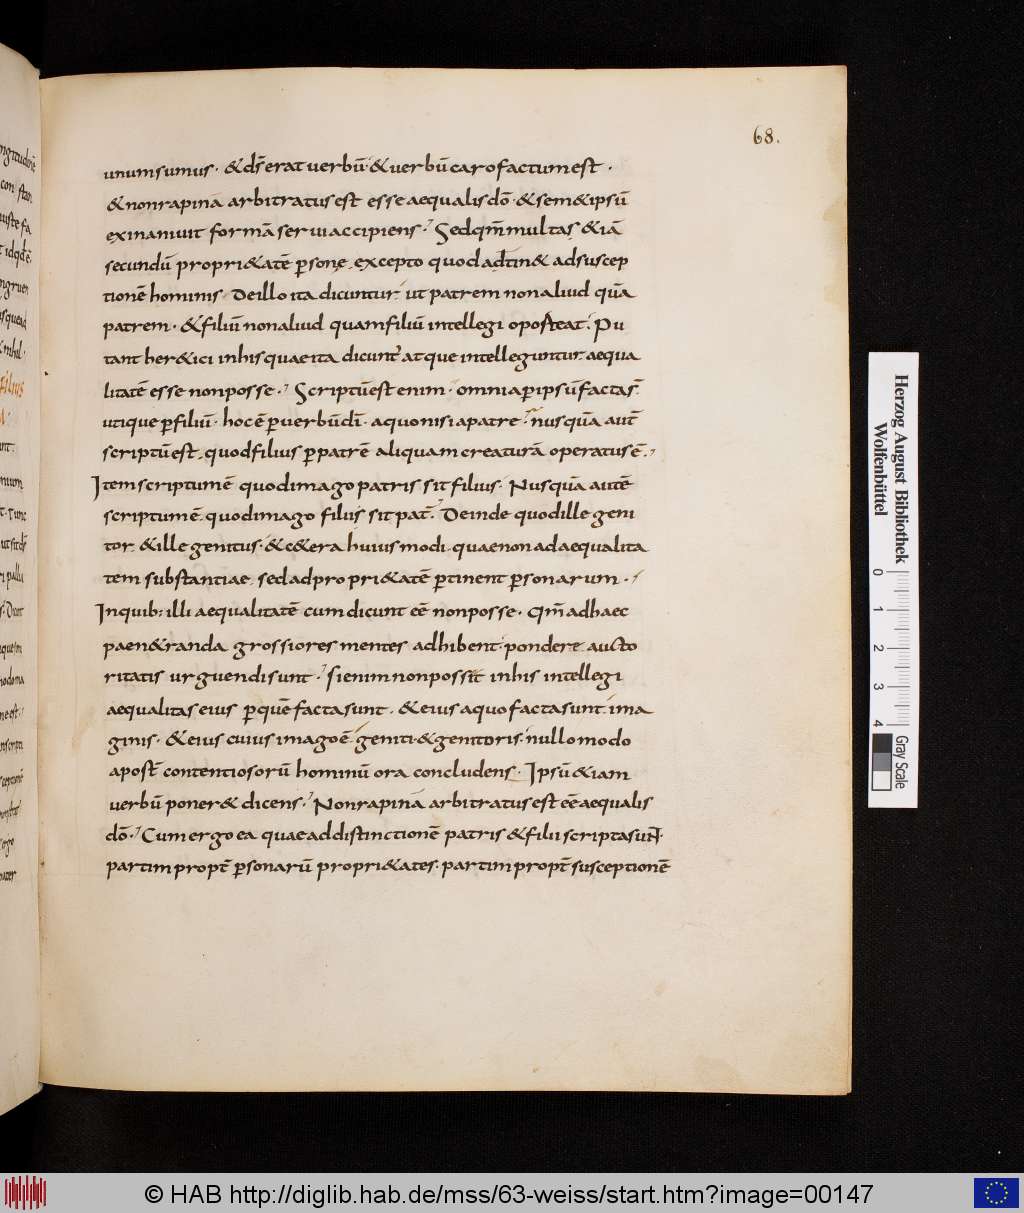 68.
unum sumus · & d̄s erat uerbū · & uerbū caro factum est ·
& non rapinā arbitratus est esse aequalis dō · & sem&ipsū
exinaniuit formā serui accipiens · Sed qm̄ multas &iā
secundū propri&atē p̄sone excepto quod ad&in& ad suscep
tionē hominis · De illo ita dicuntur ut patrem non aliud quā
patrem · & filiū non aliud quam filiū intellegi oporteat · Pu
tant her&ici in his quae ita dicunt̄ atque intelleguntur aequa
litatē esse non posse · Scriptū est enim · omnia p̄ ipsū facta s̄
utique p̄ filiū · hoc ē p̄ uerbū dī · a quo nisi a patre · nusquā aut̄
scriptū est · quod filius p̄ patrē aliquam creaturā operatus ē ·
Item scriptum ē quod imago patris sit filius · Nusquā autē
scriptum ē quod imago filii sit pat̄ · Deinde quod ille geni
tor & ille genitus · & c&era huius modi quae non ad aequalita
tem substantiae sed ad propri&atē p̄tinent p̄sonarum ·
Inquib; illi aequalitatē cum dicunt eē non posse · Qm̄ ad haec
paen&randa grossiores mentes adhibent pondere aucto
ritatis urguendi sunt · si enim non possit in his intellegi
aequalitas eius p̄ quē facta sunt · & eius a quo facta sunt ima
ginis · & eius cuius imago ē geniti & genitoris nullo modo
apost̄ contentiosorū hominū ora concludens · Ipsū &iam
uerbū poner& dicens · Non rapinā arbitratus est eē aequalis
dō · Cum ergo ea quae ad distinctionē patris & filii scripta sunt
partim propt̄ p̄sonarū propri&ates · partim propt̄ susceptionē
Herzog August Bibliothek
Wolfenbüttel
0 1 2 3 4
Gray Scale
© HAB http://diglib.hab.de/mss/63-weiss/start.htm?image=00147